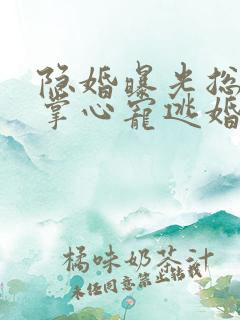 隐婚曝光总
掌心宠逃婚
橘味奶茶汁
未经同意禁止转载